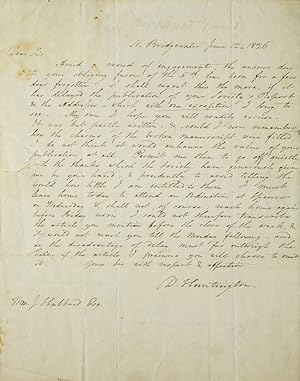 N. Bridgewater June 12. 1826
Dear Sir,
Amid a crowd of engagements the answer due
to your obliging favour of the 5th has been for a few
days forgotten. I shall regret this the more, if it
has delayed the publication of your Society's Report
& the Addresses - which with one exception I long to
see. My own I hope you will readily excuse.
It was but partly written, &, could I now remember
how the chasms of the broken manuscript were filled
I do not think it would enhance the value of your
publication at all. Permit me then to go off
with the thanks which the Society have generously given
me by your hand, & prudently to avoid telling the
world how little I am entitled to them. I must
leave home today to attend an Ordination at
on Wednesday & shall not of course reach home again
before Friday noon. I could not therefore transcribe
the article you mention before the close of the week &
it would not reach you till the Monday following - and
as the disadvantage of delay must far outweigh the
value of the article I presume you will choose to omit
it. Yours Sir with respect & affection
D. Huntington.
Wm. J. Hubbard Esq.